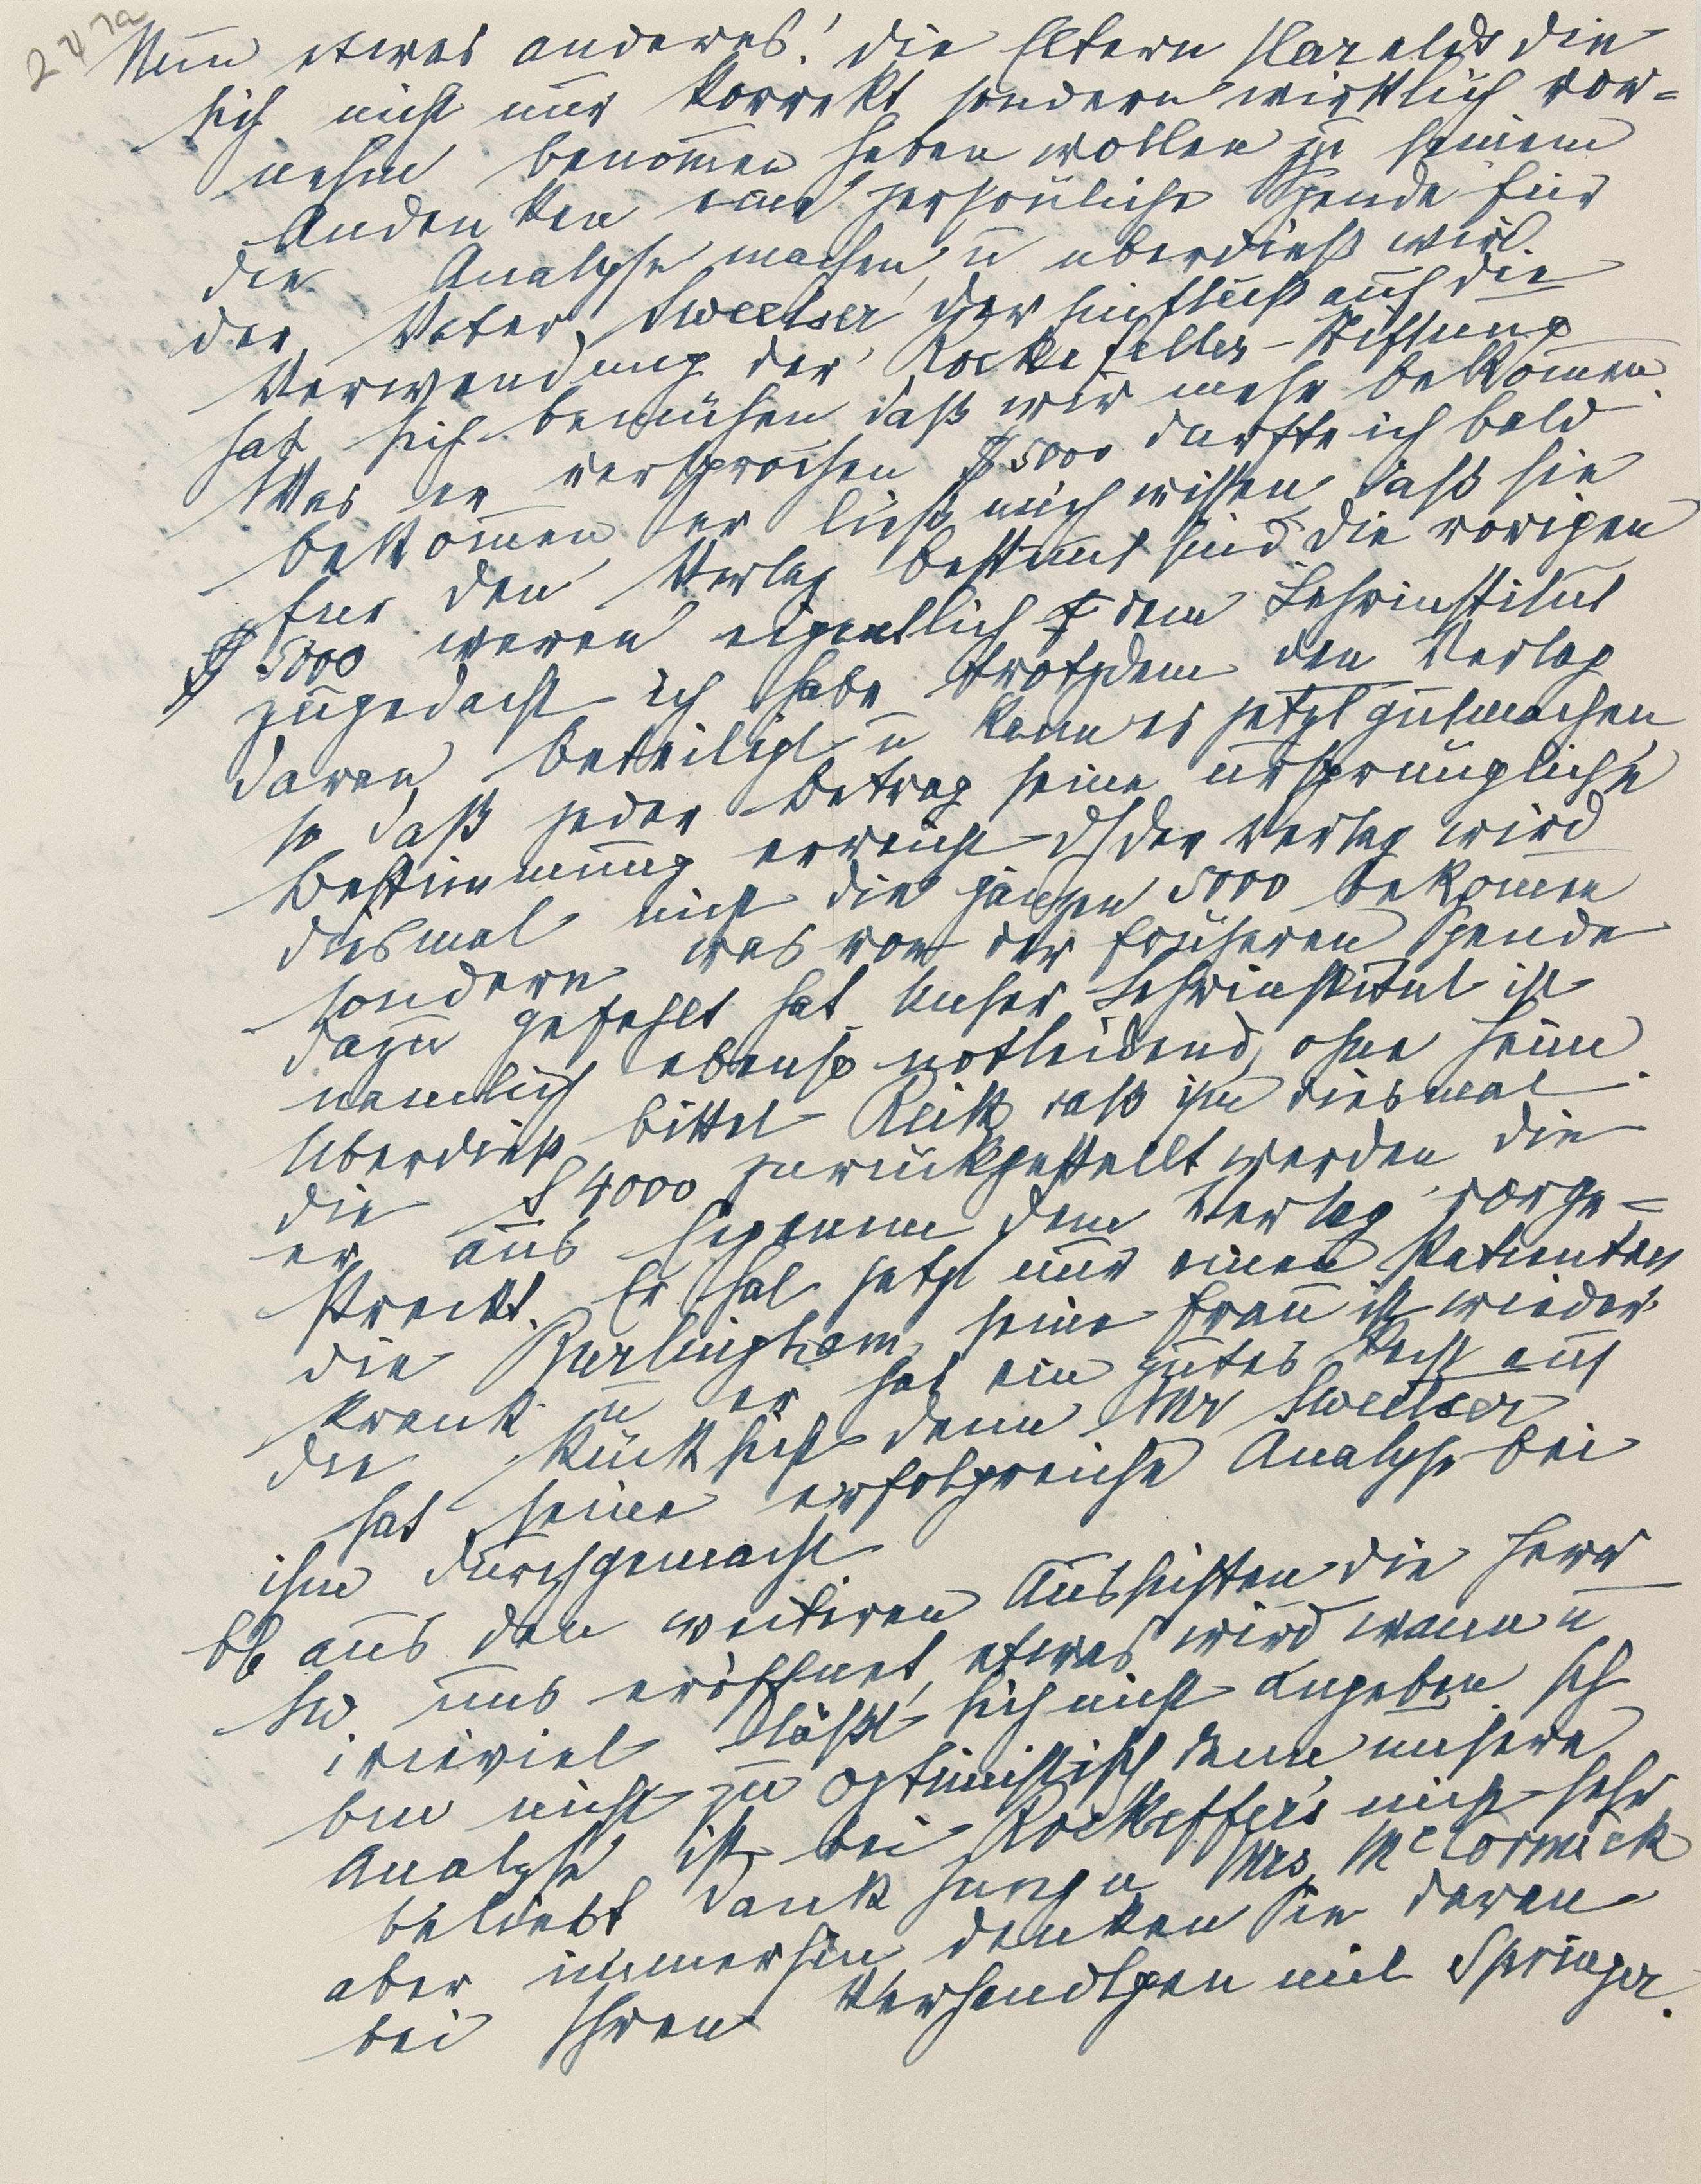 247a
Nun etwas anderes! Die Eltern Haralds die
sich nicht nur korrekt sondern wirklich vor=
nehm benom̄en haben wollen zu seinem
Andenken eine persönliche Spende für
die Analyse machen, u überdieß wird
der Vater, Sweetser der Einfluß auf die
Verwendung der Rockefeller-Stiftung
hat sich bemühen daß wir mehr bekom̄en.
Was er versprochen $ 5000 dürfte ich bald
bekom̄en er ließ mich wissen daß sie
für den Verlag bestimt sind die vorigen
$ 5000 waren eigentlich f dem Lehrinstitut
zugedacht ich habe trotzdem den Verlag
daran beteiligt u kann es jetzt gutmachen
so daß jeder Betrag seine ursprüngliche
Bestimmung erreicht dh der Verlag wird
diesmal nicht die ganzen 5000 bekom̄en
sondern was von der früheren Spende
dazu gefehlt hat Unser Lehrinstitut ist
nämlich ebenso notleidend, ohne Heim
Überdieß bittet Reik daß ihm diesmal
die S 4000 zurückgestellt werden die
er aus Eigenem dem Verlag vorge=
streckt. Er hat jetzt nur einen Patienten
die Burlingham, seine Frau ist wieder
krank u er hat ein gutes Recht auf
die Rücksicht denn Mr Sweetser
hat seine erfolgreiche Analyse bei
ihm durchgemacht
Ob aus den weiteren Aussichten die Herr
Sw. uns eröffnet, etwas wird wann u
wieviel läßt sich nicht angeben Ich
bin nicht zu optimistisch denn unsere
Analyse ist bei Rockeffers nicht sehr
beliebt dank Jung u Mrs McCormick
aber immerhin denken Sie daran
bei Ihren Verhandlgen mit Springer.